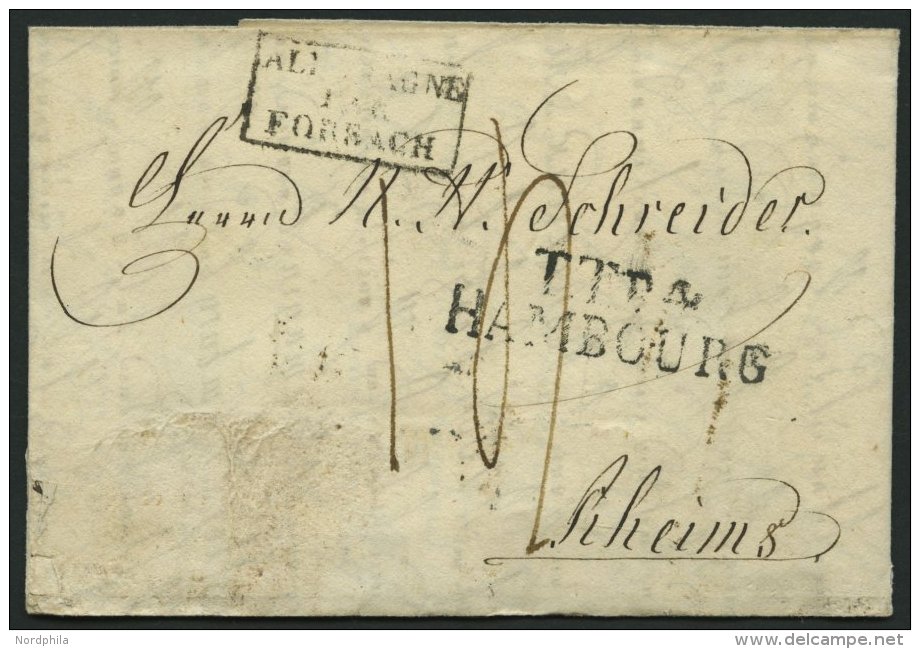 ALLEMAGNE
PAR
FORBACH
Herrn N. W. Schreider.
T.T.R.4.
HAMBOURG
Rheims.
Nordphila
delcampe.net